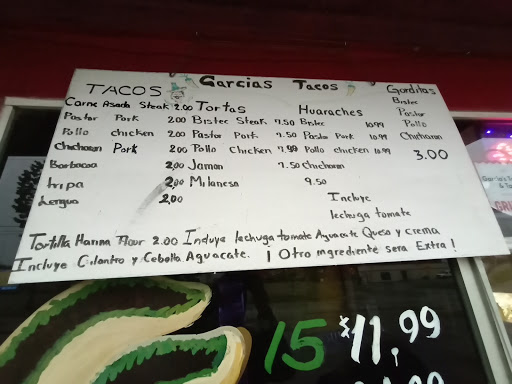 Garcias Tacos
TACOS
Carne Asada Steak 2.00
Pastor Pork 2.00
Pollo chicken 2.00
Chicharon Pork 2.00
Barbacoa 2.00
tripa 2.00
Lengua 2.00
Tortas
Bistec Steak 7.50
Pastor Pork 7.50
Pollo Chicken 7.99
Jamon 7.50
Milanesa 9.50
Huaraches
Bistec 10.99
Pastor Pork 10.99
Pollo chicken 10.99
Chicharon
Incluye
lechuga tomate
Gorditas
Bistec
Pastor
Pollo
Chicharron
3.00
Tortilla Harina Flour 2.00 Incluye lechuga tomate Aguacate Queso y crema
Incluye Cilantro y Cebolla Aguacate. ¡ Otro ingrediente sera Extra !
15 $11,99